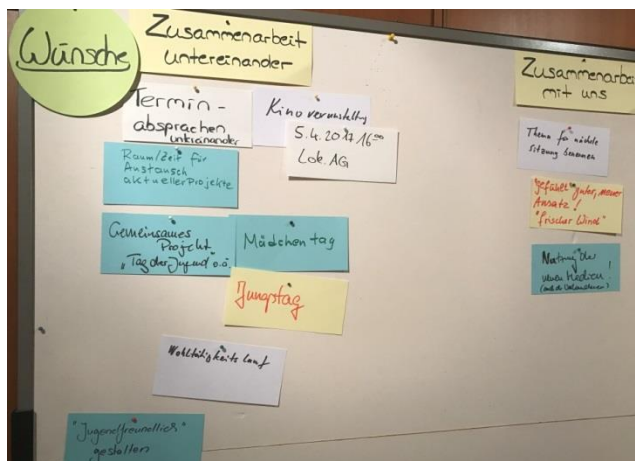 Wünsche
Zusammenarbeit
untereinander
Termin-
absprachen
untereinander
Kinoveranstaltg
5.4.2017 16⁰⁰
Lok. AG
Raum/Zeit für
Austausch
aktueller Projekte
Gemeinsames
Projekt
"Tag der Jugend" o.ä.
Mädchentag
Jungstag
Wohltätigkeitslauf
"Jugendfreundlich"
gestalten
Zusammenarbei
mit uns
Thema für nächste
Sitzung benennen
gefühlt guter, neuer
Ansatz!
"frischer Wind"
Nutzung der
neuen Medien!